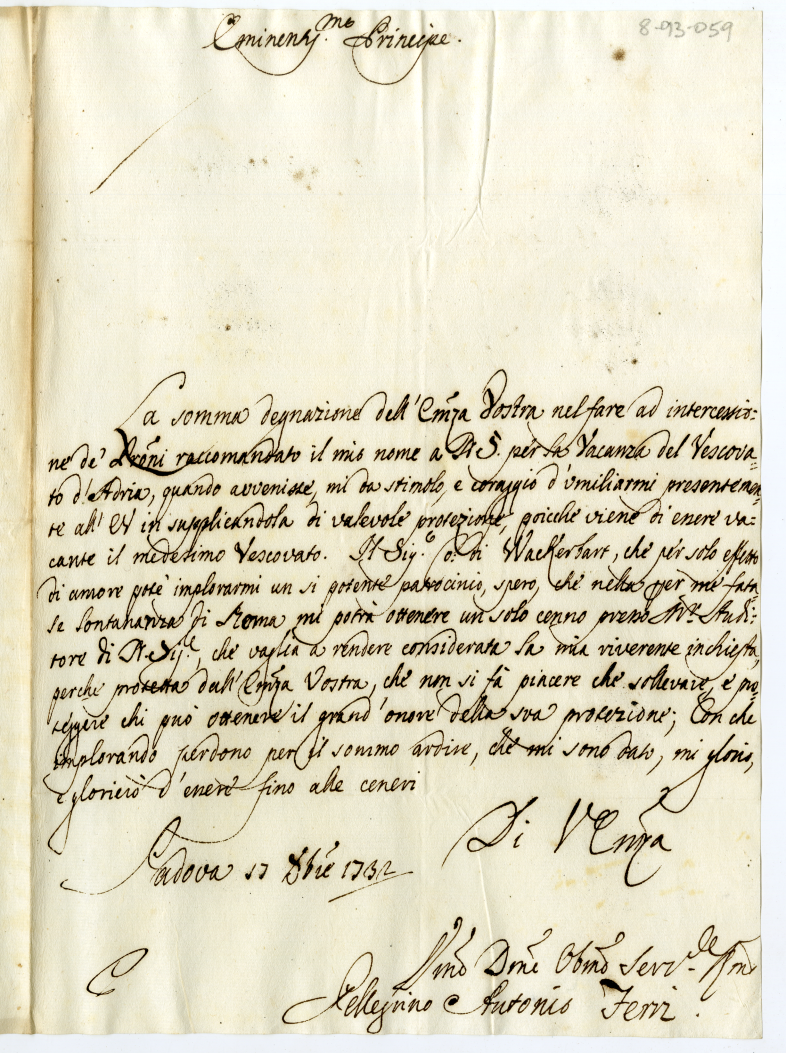 8-93-059
Eminentiss.mo Principe.
La somma degnazione dell' Emza Vostra nel fare ad intercessio=
ne de' Pròni raccomandato il mio nome a N.S. per la Vacanza del Vescova=
to d'Adria, quando avvenisse, mi da stimolo, e coraggio d'umiliarmi presentemen=
te all' EV in supplicandola di valevole protezione, poicche viene di essere va=
cante il medesimo Vescovato. Il Sig.e Co: di Wackerbart, che per solo effetto
di amore potè implorarmi un si potente patrocinio, spero, che nella per me fata
le lontananza di Roma mi potrà ottenere un solo cenno presso Mr. Audi=
tore di N. Sig.re, che vaglia a rendere considerata la mia riverente inchiesta,
perche protetta dall' Emza Vostra, che non si fà piacere che sollevare, e pro
teggere chi può ottenere il grand'onore della sua protezione; Con che
implorando perdono per il sommo ardire, che mi sono dato, mi glorio,
e glorierò d'essere fino alle ceneri
Di V Emza
Padova 17 Xbre 1732
Umo Dmo Obmo Serv.
Pellegrino Antonio Ferri.